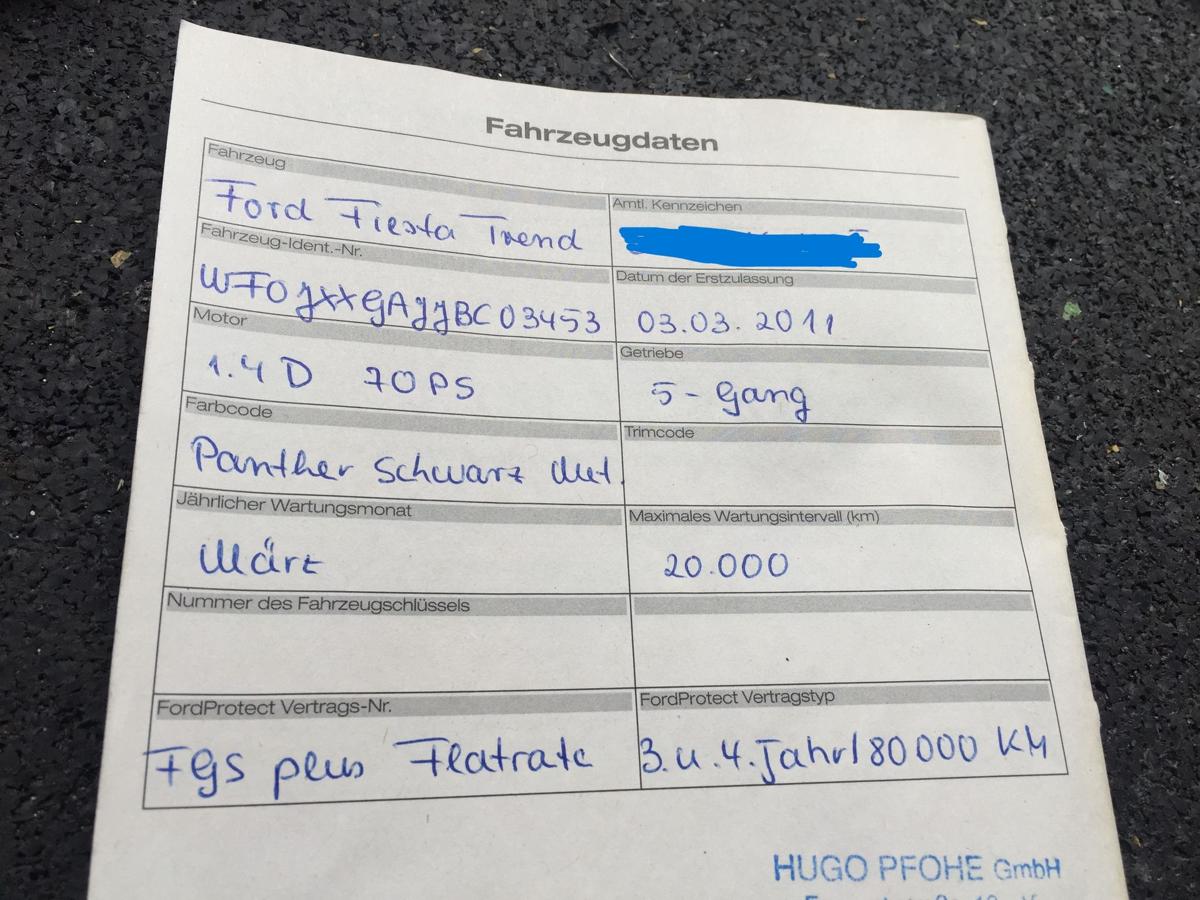 Fahrzeugdaten
Fahrzeug
Ford Fiesta Trend
Amtl. Kennzeichen
Fahrzeug-Ident.-Nr.
WF0JXXGAJJBC03453
Datum der Erstzulassung
03.03.2011
Motor
1.4 D 70 PS
Getriebe
5-Gang
Farbcode
Panther Schwarz Met.
Trimcode
Jährlicher Wartungsmonat
März
Maximales Wartungsintervall (km)
20.000
Nummer des Fahrzeugschlüssels
FordProtect Vertrags-Nr.
FGS plus Flatrate
FordProtect Vertragstyp
3. u. 4. Jahr/80000 KM
HUGO PFOHE GmbH